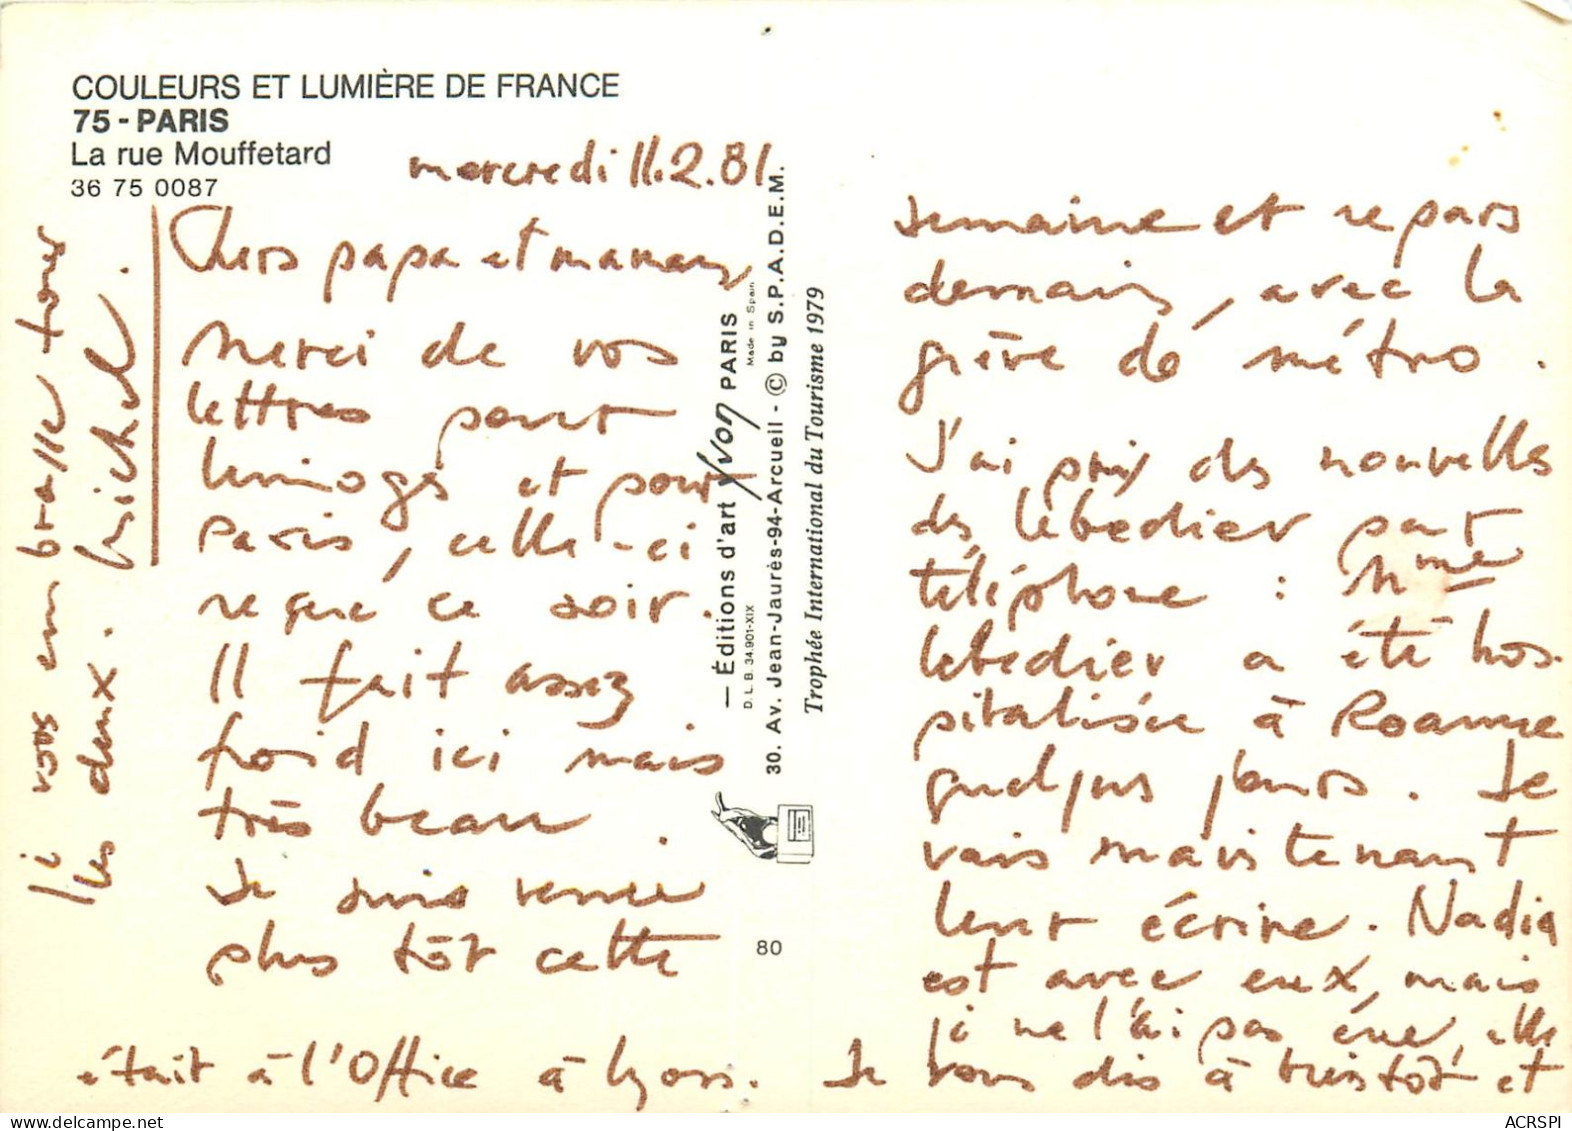 COULEURS ET LUMIÈRE DE FRANCE
75 - PARIS
La rue Mouffetard
36 75 0087
mercredi 11.2.81.
Chers papa et maman,
Merci de vos
lettres pour
Limoges et pour
Paris, celle-ci
reçue ce soir.
Il fait assez
froid ici mais
très beau.
Je suis venue
plus tôt cette
semaine et repars
demain, avec la
grève de métro.
J'ai pris des nouvelles
des Lebedier par
téléphone : Mme
Lebedier a été hos-
pitalisée à Roanne
quelques jours. Je
vais maintenant
leur écrire. Nadia
est avec eux, mais
je ne l'ai pas eue, elle
était à l'Office à Lyon.
Je vous dis à bientôt et
je vous embrasse tous
les deux.
Michel
— Éditions d'art YVON PARIS
Made in Spain
D. L. B. 34.901-XIX
30. Av. Jean-Jaurès-94-Arcueil - © by S.P.A.D.E.M.
Trophée International du Tourisme 1979
80
ACRSPI